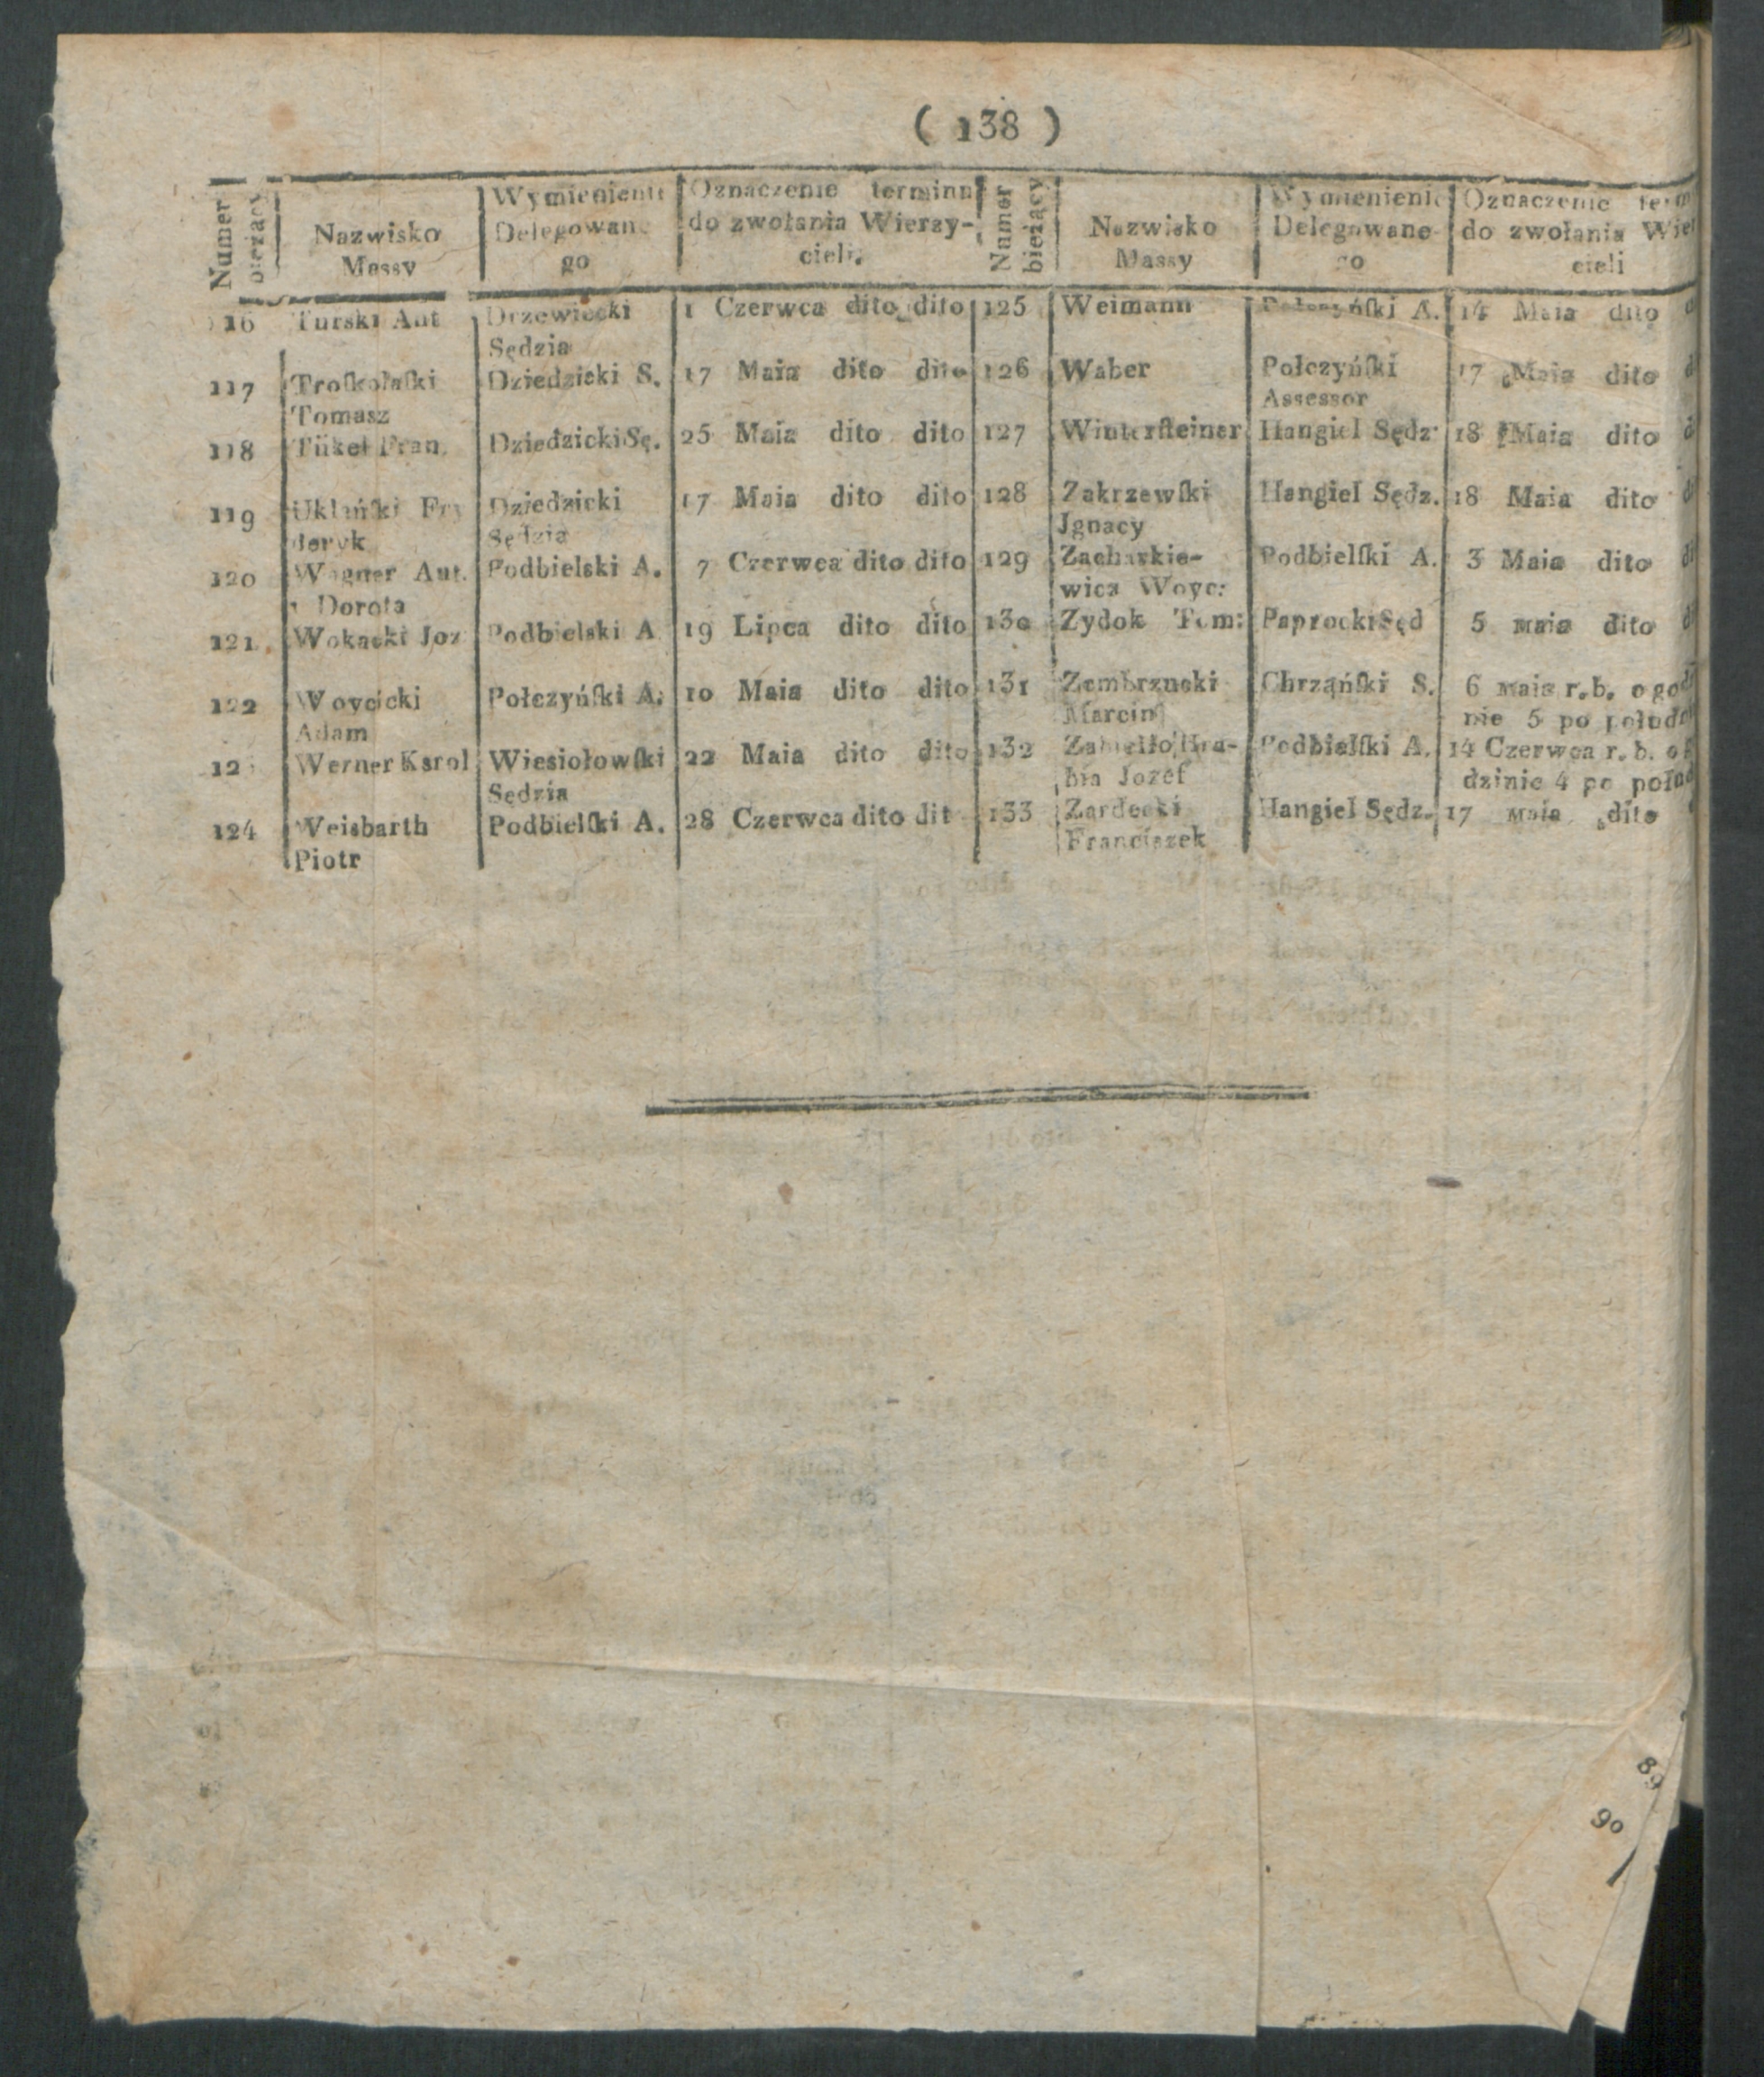 ( 138 )
Numer bieżący
Nazwisko
Massy
Wymienienie
Delegowane
go
Oznaczenie terminu
do zwołania Wierzy-
cieli.
Numer bieżący
Nazwisko
Massy
Wymienienie
Delegowane
go
Oznaczenie term
do zwołania Wie
cieli
116 Turski Ant Drzewiecki 1 Czerwca dito dito
Sędzia
117 Troſkolaſki Dziedzicki S. 17 Maia dito dito
Tomasz
118 Fran. Dziedzicki Sę. 25 Maia dito dito
119 Uklańſki Fry Dziedzicki 17 Maia dito dito
deryk Sędzia
120 Wagner Ant. Podbielski A. 7 Czerwca dito dito
i Dorota
121 Wokacki Joz Podbielski A 19 Lipca dito dito
122 Woycicki Połczyńſki A. 10 Maia dito dito
Adam
12 Werner Karol Wiesiołowſki 22 Maia dito dito
Sędzia
124 Weisbarth Podbielſki A. 28 Czerwca dito dit
Piotr
125 Weimann Połczyńſki A. 14 Maia dito d
126 Waber Połczyńſki 17 Maia dito d
Assessor
127 Winterſteiner Hangiel Sędz 18 Maia dito d
128 Zakrzewſki Hangiel Sędz. 18 Maia dito d
Jgnacy
129 Zacharkie- Podbielſki A. 3 Maia dito di
wicz Woyc:
130 Zydok Tom: Paprocki Sęd 5 maia dito d
131 Zembrzucki Chrząńſki S. 6 maia r. b. o god
Marcin nie 5 po połud
132 Zabiełło Hra- Podbielſki A. 14 Czerwca r. b. o
bia Jozef dzinie 4 po połud
133 Zardecki Hangiel Sędz. 17 maia dito
Franciszek
89
90